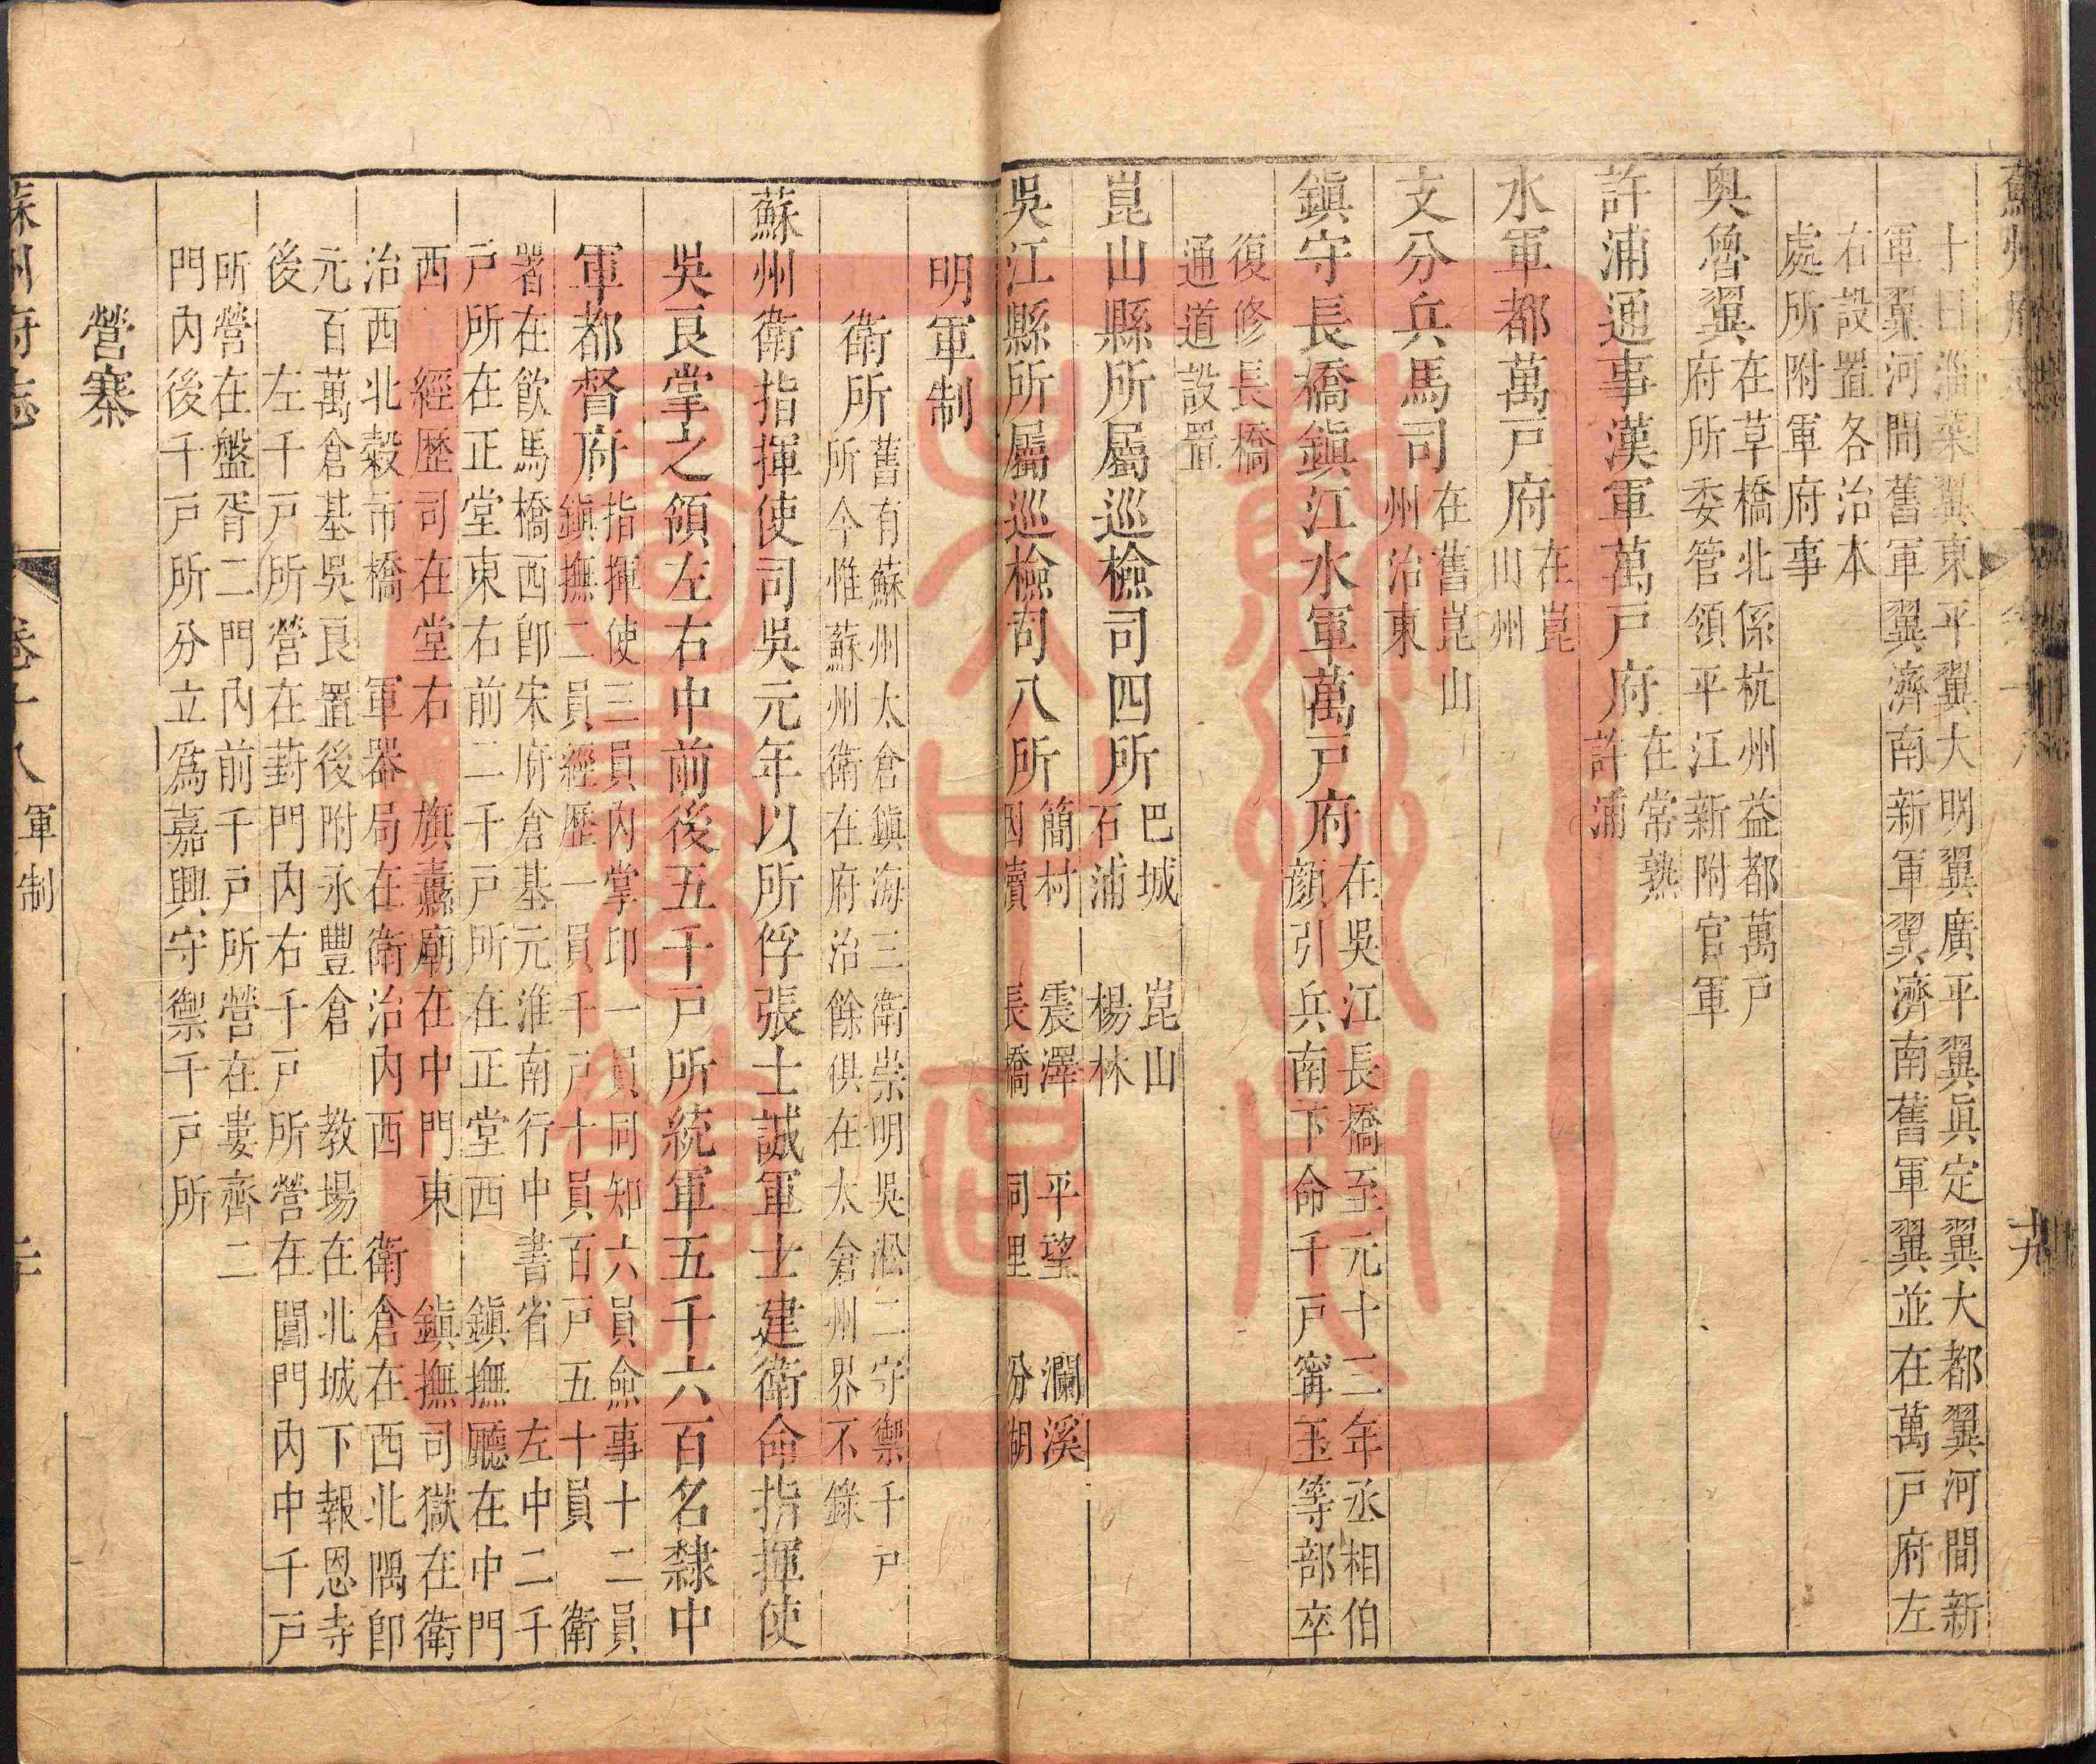 蘇州府志 卷十八 十九
十日淄萊翼東平翼大明翼廣平翼眞定翼大都翼河間新
軍翼河間舊軍翼濟南新軍翼濟南舊軍翼並在萬戶府左
右設置各治本
處所附軍府事
奧魯翼在草橋北係杭州益都萬戶
府所委管領平江新附官軍
許浦通事漢軍萬戶府在常熟
許浦
水軍都萬戶府在崑
山州
支分兵馬司在舊崑山
州治東
鎮守長橋鎮江水軍萬戶府在吳江長橋至元十二年丞相伯
顏引兵南下命千戶寗玉等部卒
復修長橋
通道設置
崑山縣所屬巡檢司四所巴城 崑山
石浦 楊林
吳江縣所屬巡檢司八所簡村 震澤 平望 瀾溪
因瀆 長橋 同里 汾湖
明軍制
衛所舊有蘇州太倉鎮海三衛崇明吳淞二守禦千戶
所今惟蘇州衛在府治餘俱在太倉州界不錄
蘇州衛指揮使司吳元年以所俘張士誠軍士建衛命指揮使
吳良掌之領左右中前後五千戶所統軍五千六百名隸中
軍都督府指揮使三員內掌印一員同知六員僉事十二員
鎮撫二員經歷一員千戶十員百戶五十員 衛
署在飲馬橋西卽宋府倉基元淮南行中書省 左中二千
戶所在正堂東右前二千戶所在正堂西 鎮撫廳在中門
西 經歷司在堂右 旗纛廟在中門東 鎮撫司獄在衛
治西北穀市橋 軍器局在衛治內西 衛倉在西北隅卽
元百萬倉基吳良置後附永豐倉 教場在北城下報恩寺
後 左千戶所營在葑門內右千戶所營在閶門內中千戶
所營在盤胥二門內前千戶所營在婁齊二
門內後千戶所分立爲嘉興守禦千戶所
營寨
蘇州府志 卷十八 軍制 二十